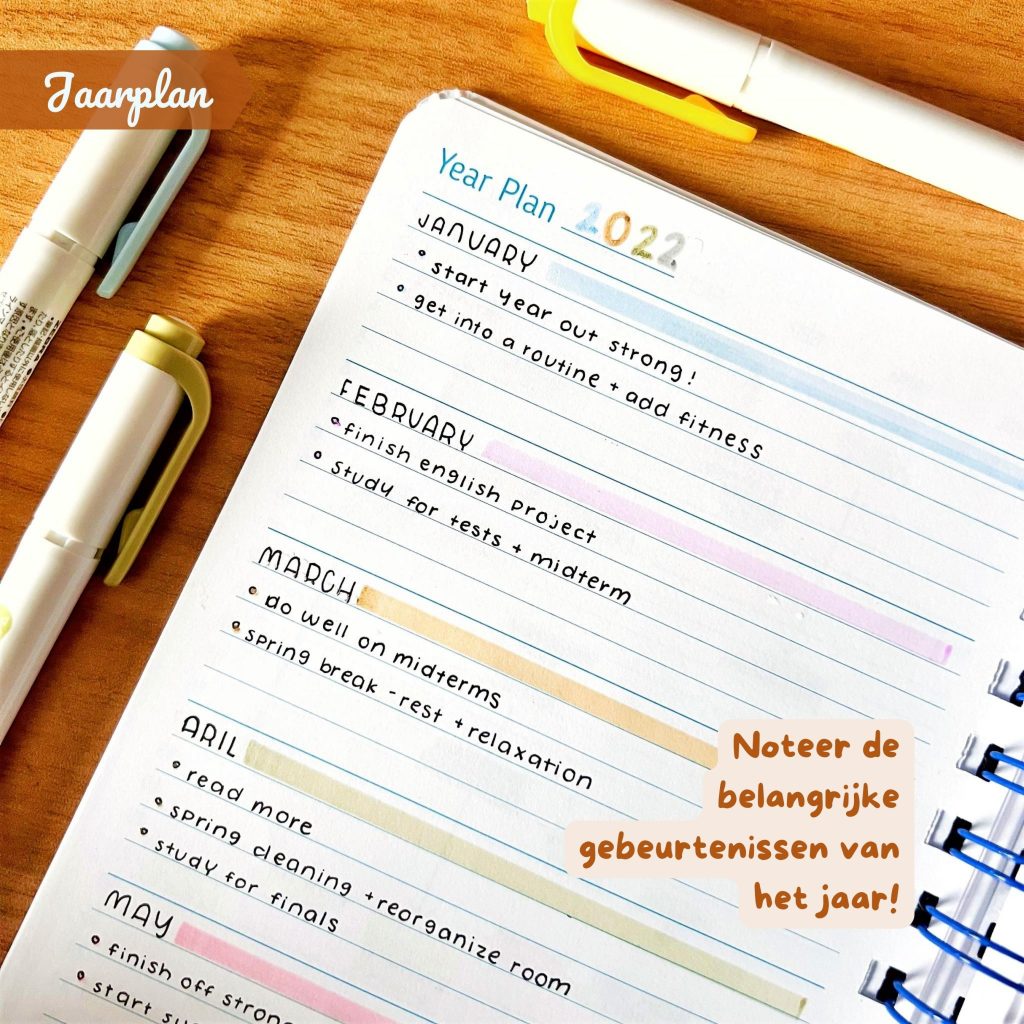 Jaarplan
Year Plan 2022
JANUARY
start year out strong!
get into a routine + add fitness
FEBRUARY
finish english project
study for tests + midterm
MARCH
do well on midterms
spring break - rest + relaxation
ARIL
read more
spring cleaning + reorganize room
study for finals
MAY
finish off stron
start
Noteer de
belangrijke
gebeurtenissen van
het jaar!